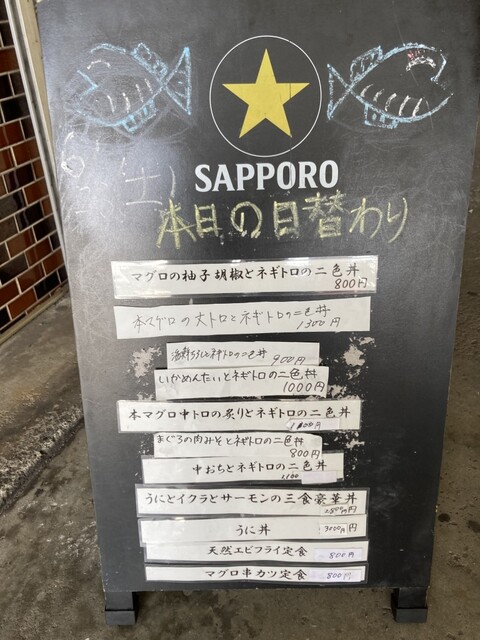 (土)
SAPPORO
本日の日替わり
マグロの柚子胡椒とネギトロの二色丼
800円
本マグロの大トロとネギトロの二色丼
1300円
とネギトロの二色丼
900円
いかめんたいとネギトロの二色丼
1000円
本マグロ中トロの炙りとネギトロの二色丼
まぐろの肉みそとネギトロの二色丼
800円
中おちとネギトロの二色丼
1100
うにとイクラとサーモンの三食豪華丼
2800円
うに丼
3000円
天然エビフライ定食
800円
マグロ串カツ定食
800円